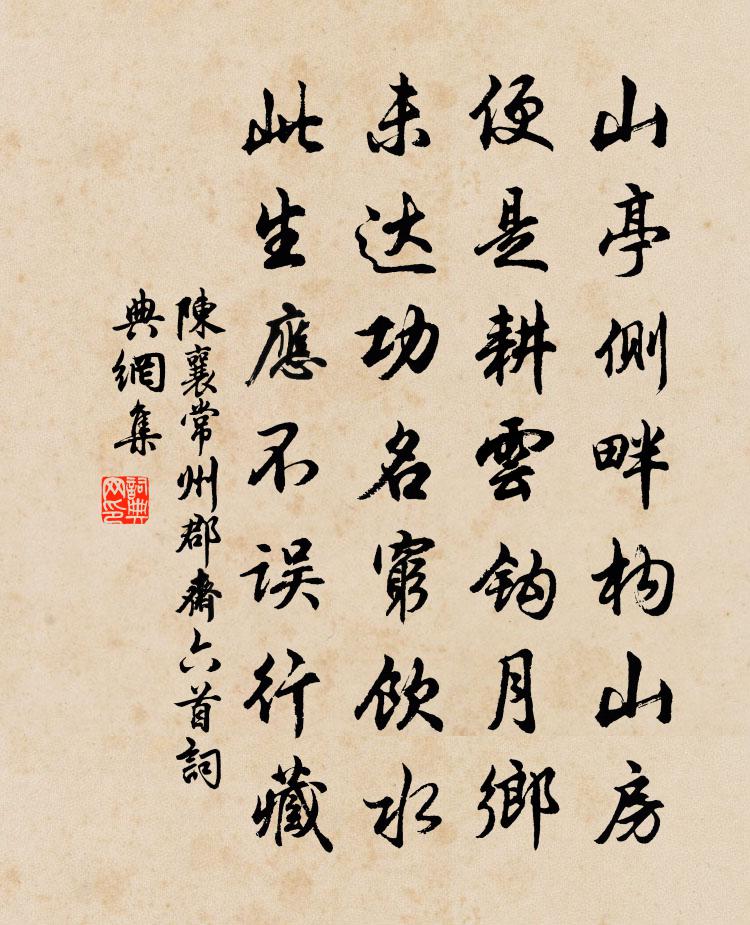 山亭側畔构山房
便是耕雲钩月鄉
未达功名窮飲水
此生應不误行藏
陳襄常州郡齋六首詞
典網集
詞典
网印